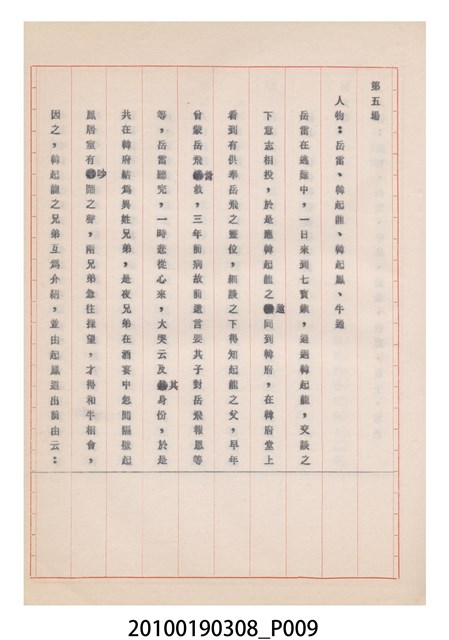 第五場
人物：岳雷、韓起龍、韓起鳳、牛通
岳雷在逃難中，一日來到七寶鎮，遇過韓起龍，交談之
下意志相投，於是應韓起龍之邀同到韓府，在韓府堂上
看到有供奉岳飛之靈位，細談之下得知起龍之父，早年
曾蒙岳飛營救，三年前病故前遺言要其子對岳飛報恩等
等，岳雷聽完，一時悲從心來，大哭云及其身份，於是
共在韓府結為異姓兄弟，是夜兄弟在酒宴中忽聞隔壁起
鳳居室有吵鬧之聲，兩兄弟急往探望，才得和牛相會，
因之，韓起龍之兄弟互為介紹，並由起鳳道出前由云：
20100190308_P009